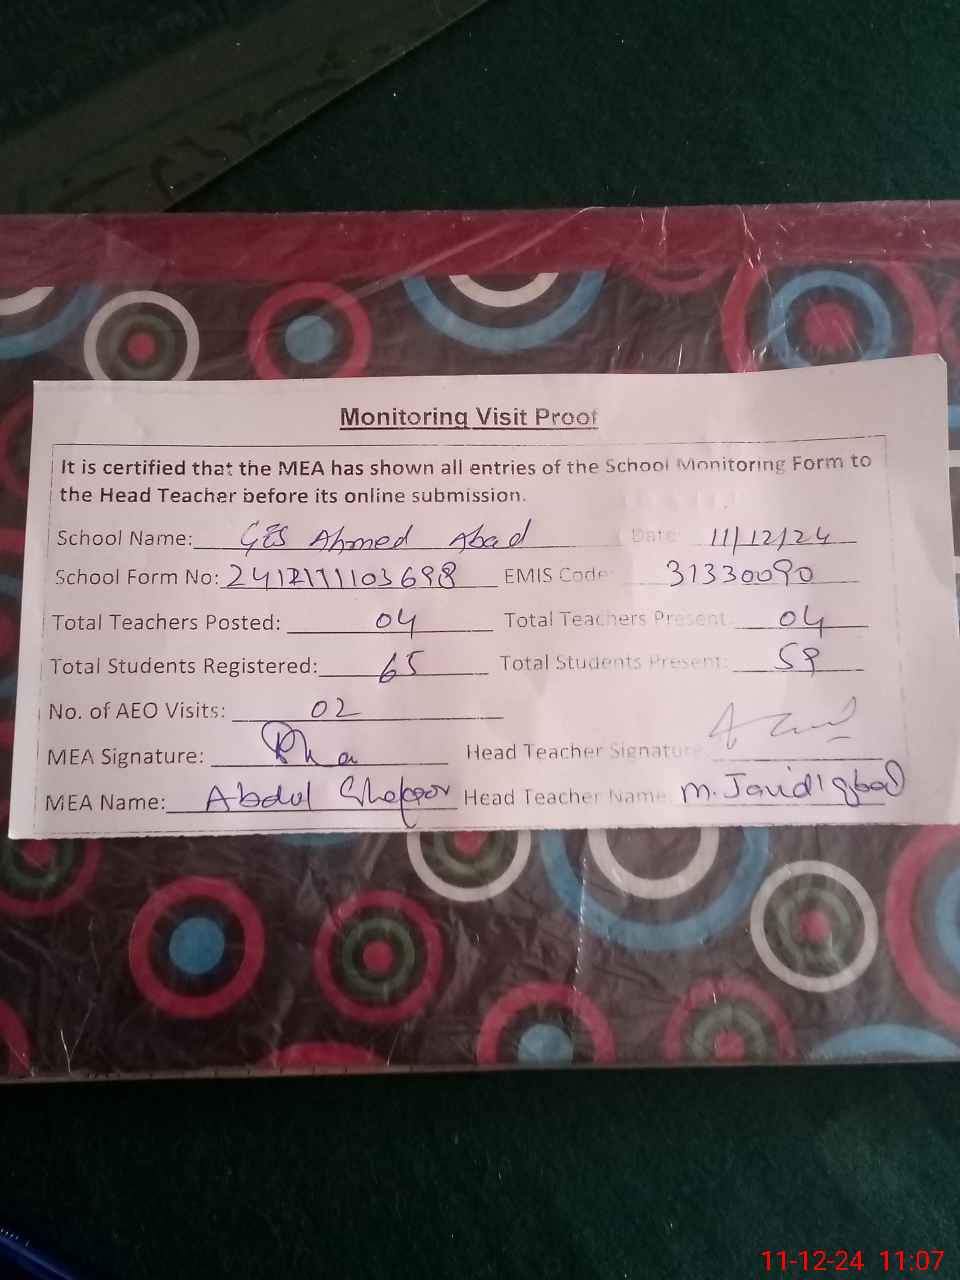 Monitoring Visit Proof
It is certified that the MEA has shown all entries of the School Monitoring Form to
the Head Teacher before its online submission.
School Name: GES Ahmed Abad Date: 11/12/24
School Form No: 2412111103698 EMIS Code: 31330090
Total Teachers Posted: 04 Total Teachers Present: 04
Total Students Registered: 65 Total Students Present: 59
No. of AEO Visits: 02
MEA Signature: Head Teacher Signature
MEA Name: Abdul Head Teacher Name M. Javid Iqbal
11-12-24 11:07